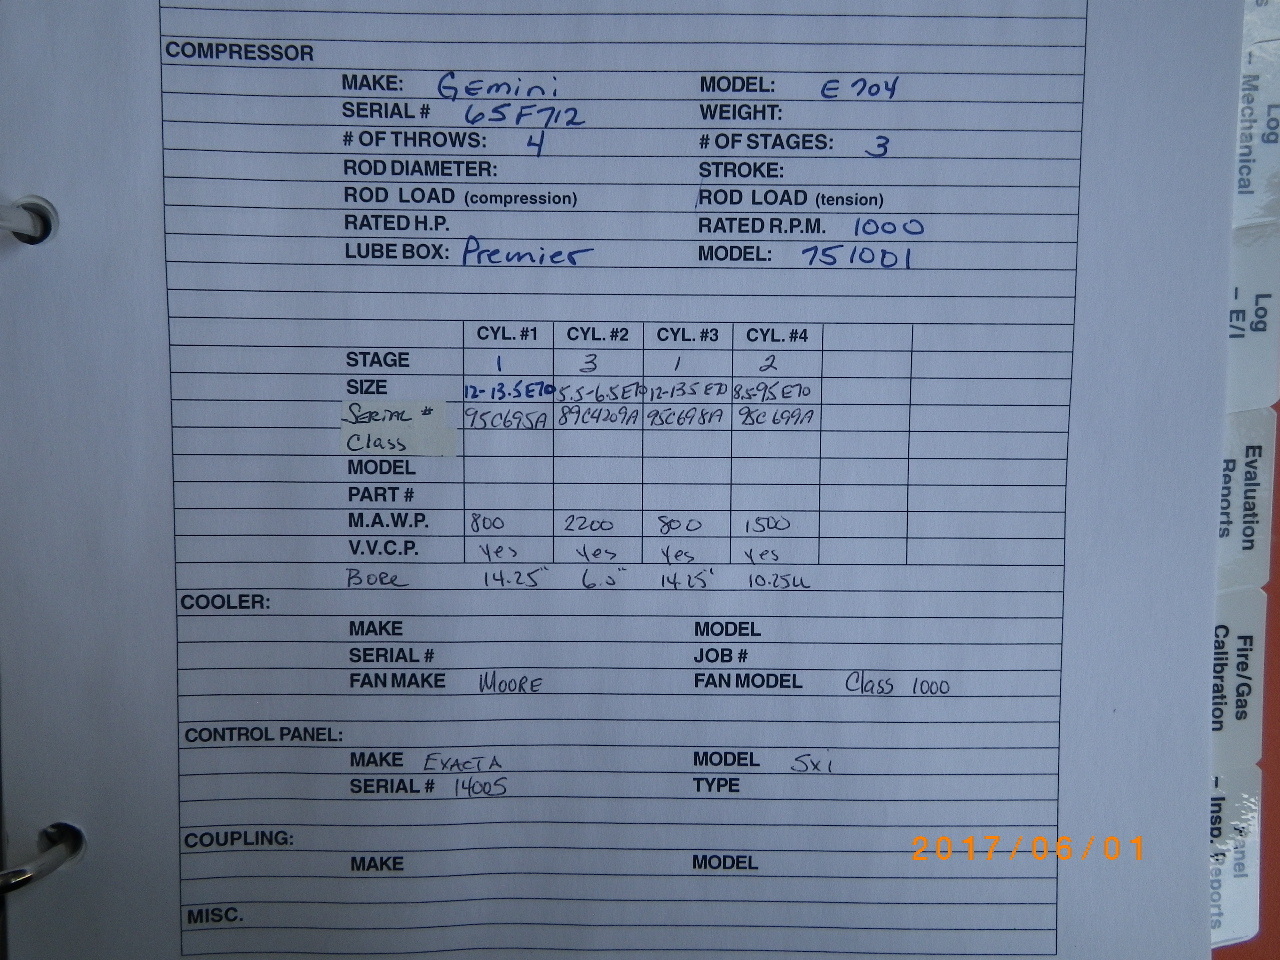 COMPRESSOR
MAKE: Gemini MODEL: E704
SERIAL # 65F712 WEIGHT:
# OF THROWS: 4 # OF STAGES: 3
ROD DIAMETER: STROKE:
ROD LOAD (compression) ROD LOAD (tension)
RATED H.P. RATED R.P.M. 1000
LUBE BOX: Premier MODEL: 751001
CYL. #1 CYL. #2 CYL. #3 CYL. #4
STAGE 1 3 1 2
SIZE 12-13.5E70 5.5-6.5E70 12-135 E70 8.5-95 E70
Serial # 95C695A 89C4209A 95C698A 95C699A
Class
MODEL
PART #
M.A.W.P. 800 2200 800 1500
V.V.C.P. yes yes yes yes
Bore 14.25" 6.0" 14.25" 10.25"
COOLER:
MAKE MODEL
SERIAL # JOB #
FAN MAKE MOORE FAN MODEL Class 1000
CONTROL PANEL:
MAKE EXACTA MODEL Sxi
SERIAL # 14005 TYPE
COUPLING:
MAKE MODEL
MISC.
2017/06/01
Log
- Mechanical
Log
- E/I
Evaluation
Reports
Fire/Gas
Calibration
Panel
- Insp. Reports